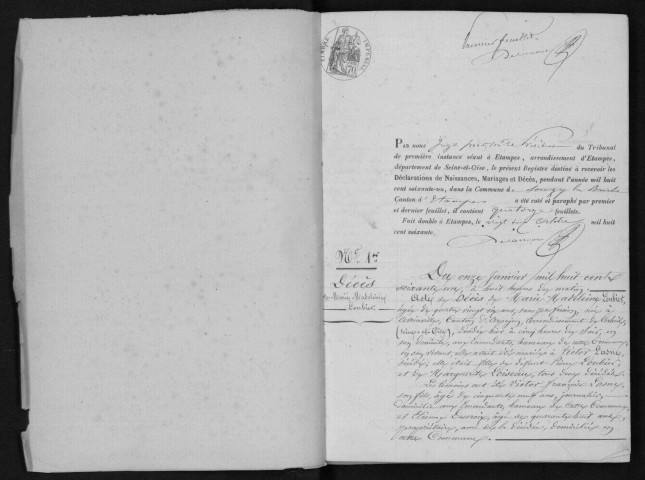 Premier feuillet
Par nous Juge du Tribunal
de première instance séant à Etampes, arrondissement d'Etampes,
département de Seine-et-Oise, le présent Registre destiné à recevoir les
Déclarations de Naissances, Mariages et Décès, pendant l'année mil huit
cent soixante-un, dans la Commune de Souzy la Briche
Canton d'Etampes a été coté et paraphé par premier
et dernier feuillet, il contient quatorze feuillets.
Fait double à Etampes, le vingt six Octobre mil huit
cent soixante.
No. 1er
Décès
de Marie Madeleine
Loubier
Du onze Janvier mil huit cent
soixante un, à huit heures du matin,
Acte de Décès de Marie Madeleine Loubier,
âgée de quatre vingt six ans, sans profession, née à
Canton d' arrondissement de
(Seine et Oise), décédée hier à cinq heures du soir, en
son domicile, aux Emondants, hameau de cette Commune,
en son vivant, elle était mariée à Victor
décédé; elle était fille de défunt Pierre Loubier,
et de Marguerite Loiseau, tous deux décédés.
Les témoins ont été Victor François
son fils, âgé de cinquante neuf ans, journalier,
domicilié aux Emondants, hameau de cette Commune
et Etienne âgé de quarante huit ans,
propriétaire, ami de la décédée, domicilié en
cette Commune